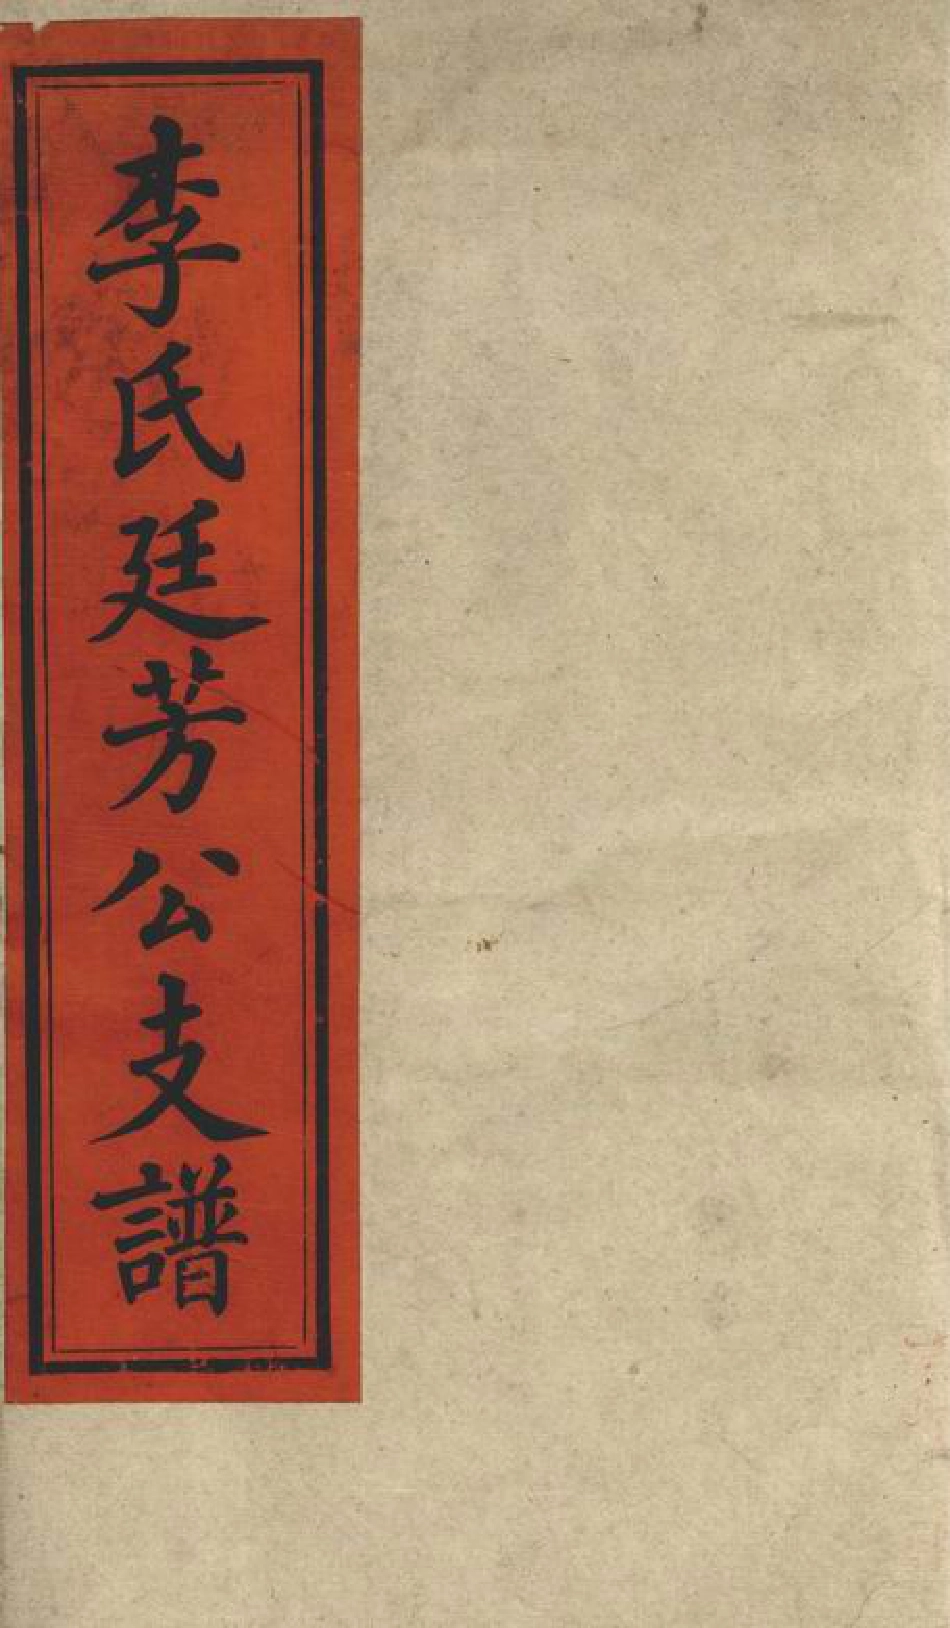 李氏廷芳公支譜